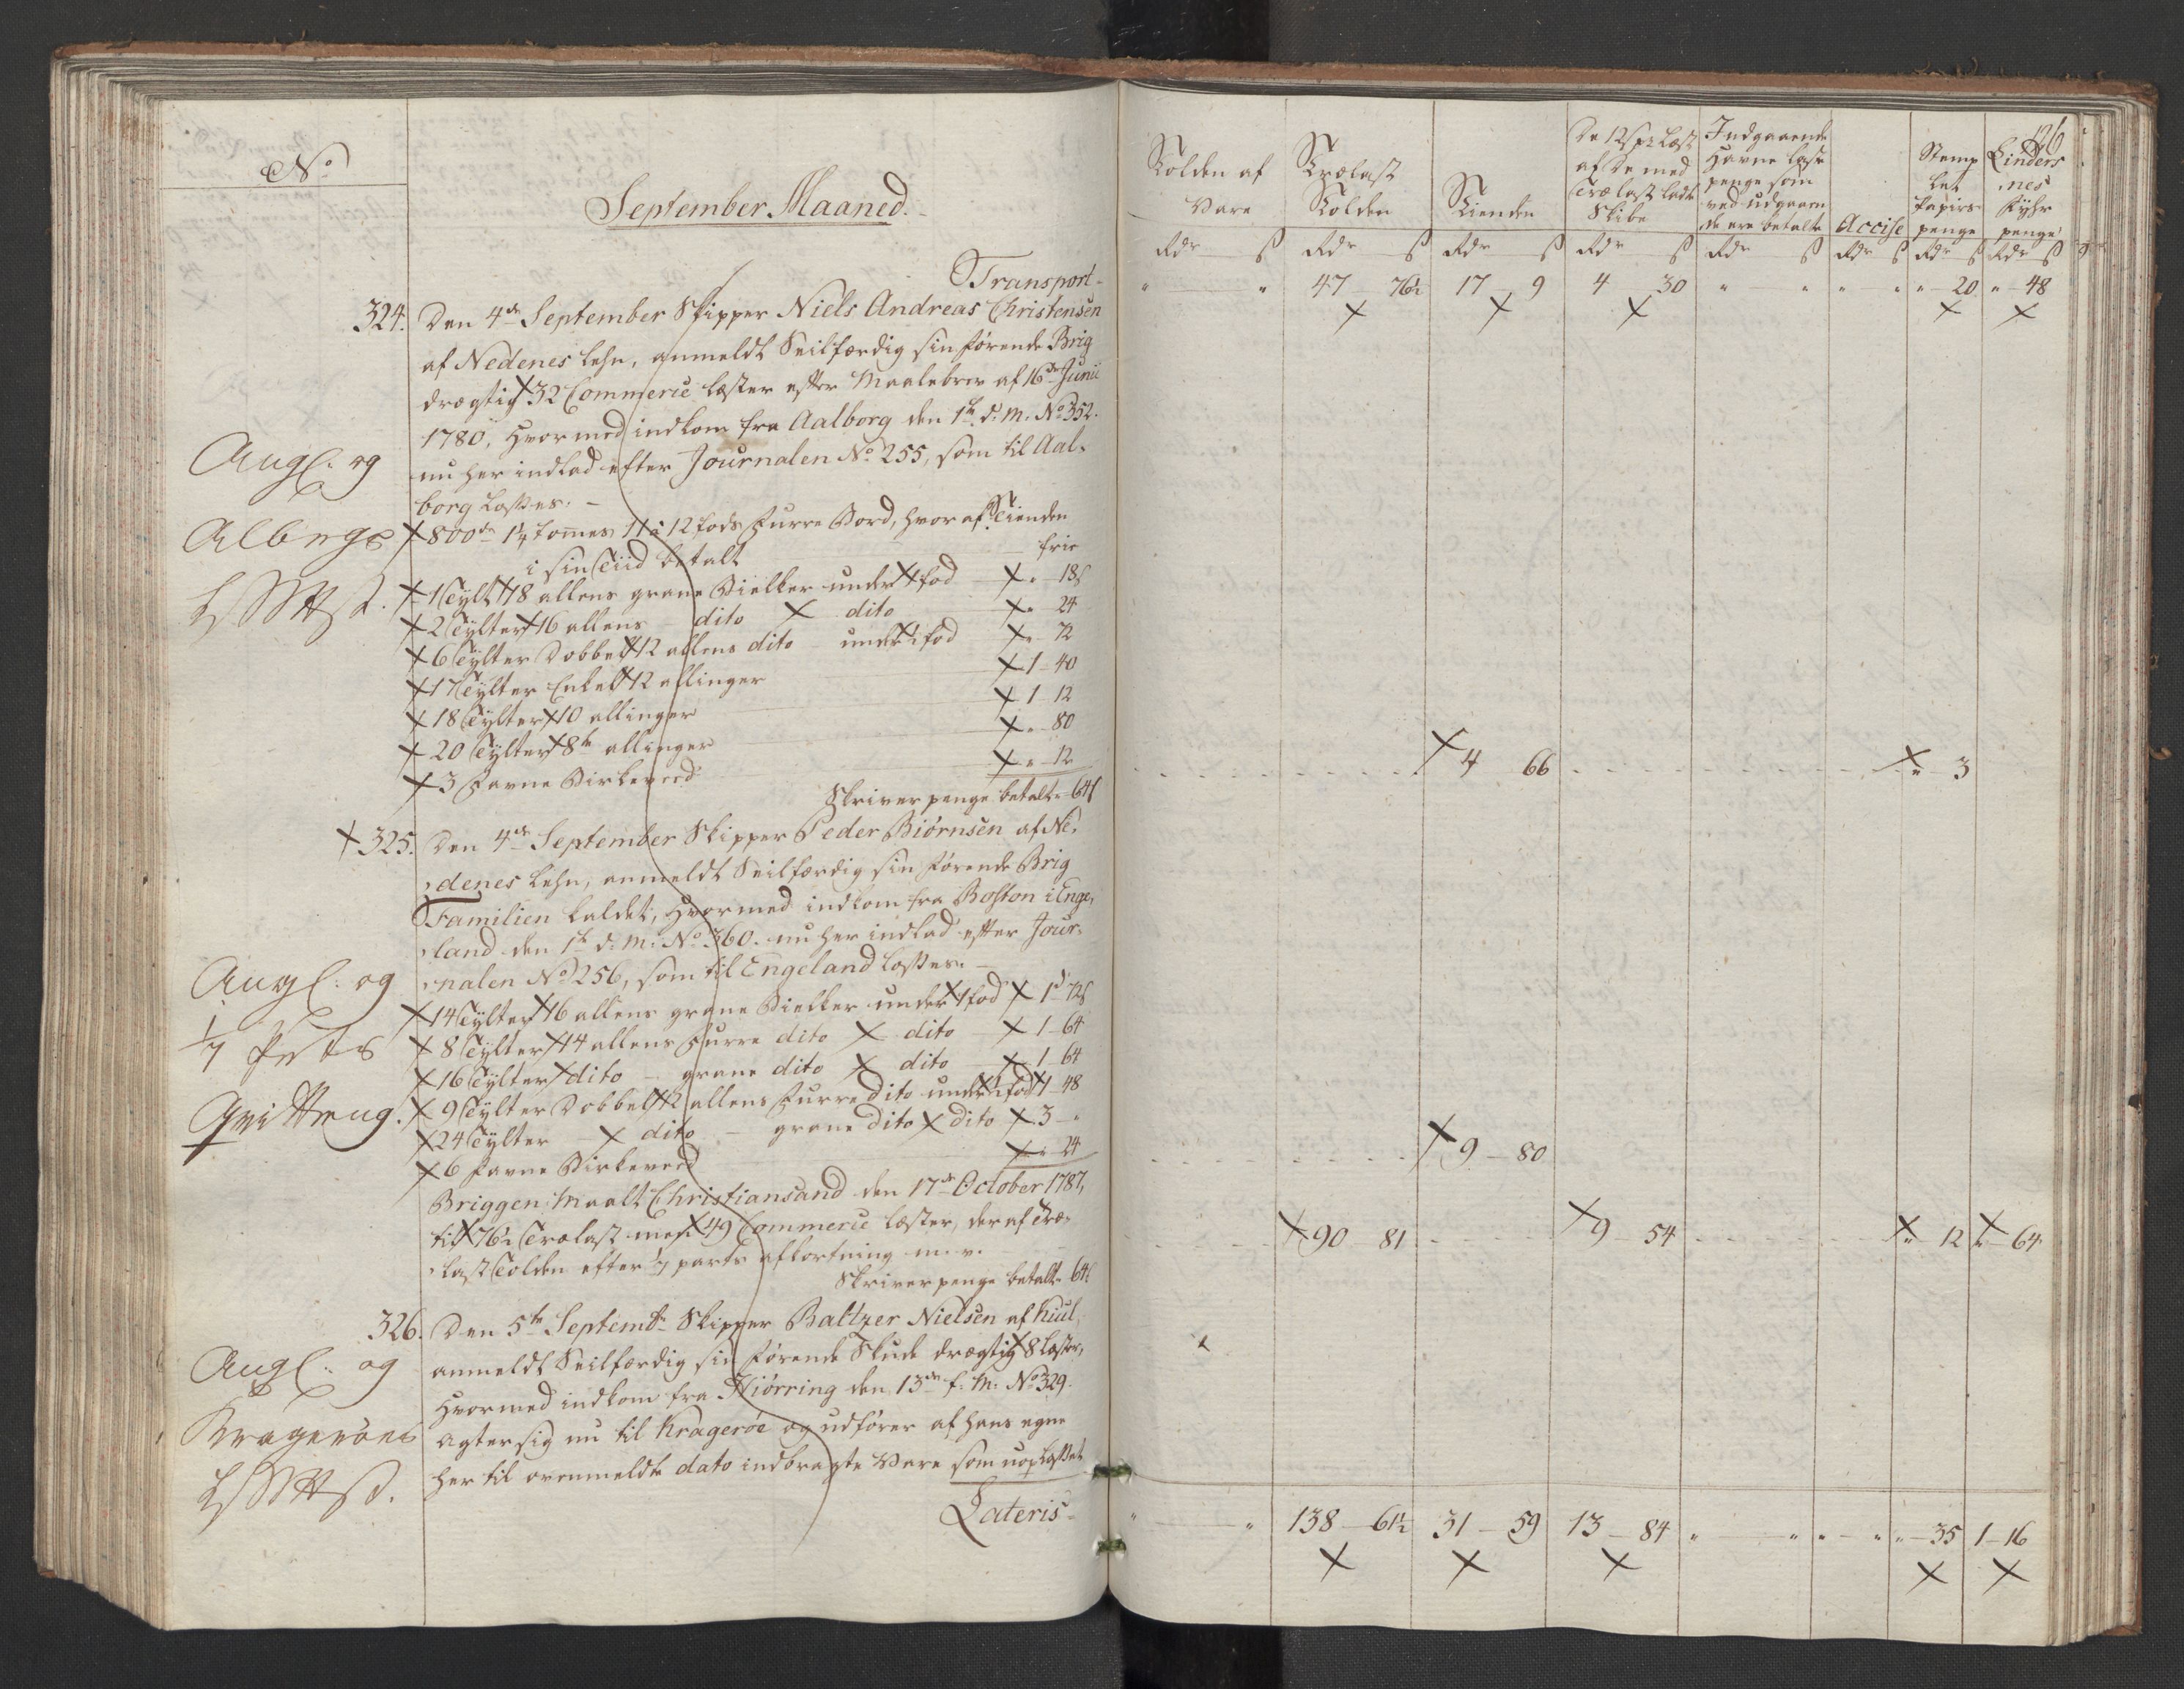 No
September Maaned.
Transport
324. Den 4de September Skipper Niels Andreas Christensen
af Nedenes Lehn, anmeldt Seilfærdig sin førende Brig
drægtig 32 Commerce læster efter Maalebrev af 16de Junii
1780, hvormed indkom fra Aalborg den 1te d: M: No 352.
nu her indlad efter Journalen No 255, som til Aal-
borg losses. -
Angl: og
Alborgs
800de 1¼ tommes 11 a 12 fods Furre Bord, hvoraf Tienden
i sin Tiid betalt frie
1 Tylt 18 allens grane Bielker under 1 fod " 18 ß
2 Tylter 16 allens dito dito " 24
6 Tylter Dobbelt 12 allens dito under 1 fod " 72
17 Tylter Enkelt 12 allinger 1 - 40
18 Tylter 10 allinger 1 - 12
20 Tylter 8te allinger " 80
3 Favne Birkeveed " 12
Skriverpenge betalt 64 ß
325. Den 4de September Skipper Peder Biørnsen af Ne-
denes Lehn, anmeldt Seilfærdig sin førende Brig
Familien kaldet, hvormed indkom fra Boston i Enge-
land den 1te d: M: No 360. nu her indlad efter Jour-
nalen No 256, som til Engeland losses. -
Angl: og
1/7 Parts
Qvitteng.
14 Tylter 16 allens grane Bielker under 1 fod 1 d 72 ß
8 Tylter 14 allens Furre dito dito 1 - 64
16 Tylter dito - grane dito dito 1 - 64
9 Tylter Dobbelt 12 allens Furre dito under 1 fod 1 - 48
24 Tylter - dito - grane dito dito 3 - "
6 Favne Birkeveed " 24
Briggen Maalt Christiansand den 17de October 1787,
til 76½ Trælast men 49 Commerce læster, deraf Træ-
last Tolden efter 1/7 parts afkortning m. v.
Skriverpenge betalt 64 ß
326. Den 5te Septembr Skipper Baltzer Nielsen af Kiul,
anmeldt Seilfærdig sin førende Skude drægtig 8 læster,
hvormed indkom fra Hiørring den 13de f: M: No 329.
agter sig nu til Kragerøe og udfører af hans egne
her til ovenmeldte dato indbragte Vare som uoplosset
Angl: og
Kragerøes
Lateris
126
Tolden af Vare
Trælast Tolden
Tienden
De 12 ß pr Læst af De med Træelast ladte Skibe
Indgaaende Havne laste penge som ved udgaaen de ere betalte
Accise
Stemp let Papirs penge
Linders nes Fyhr penge
Rdr ß Rdr ß Rdr ß Rdr ß Rdr ß Rdr ß Rdr ß Rdr ß
" " 47 76½ 17 9 4 30 " " " " " 20 " 48
4 66 " 3
9 - 80
90 81 9 - 54 " 12 " 64
" " 138 - 61½ 31 - 59 13 - 84 " " " " " 35 1 - 16